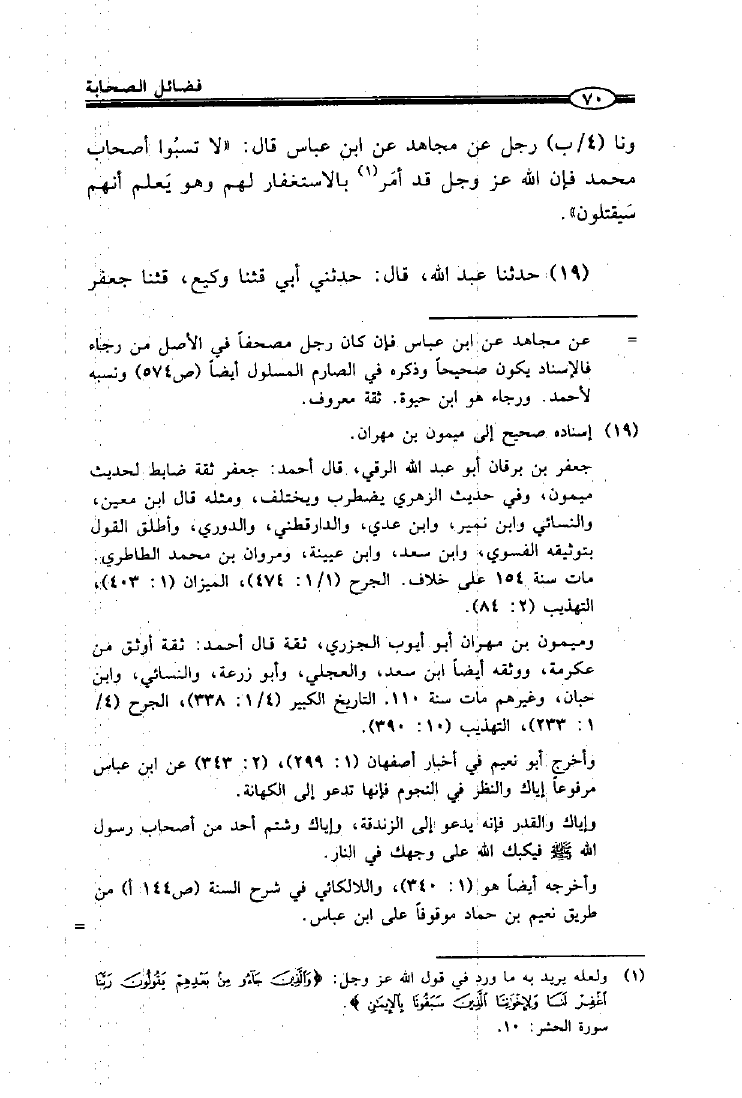 فضائل الصحابة
٧٠
ونا (٤/ب) رجل عن مجاهد عن ابن عباس قال: «لا تسبُوا أصحاب
محمد فإن الله عز وجل قد أمَر(١) بالاستغفار لهم وهو يَعلم أنهم
سَيقتلون».
(١٩) حدثنا عبد الله، قال: حدثني أبي قثنا وكيع، قثنا جعفر
= عن مجاهد عن ابن عباس فإن كان رجل مصحفاً في الأصل من رجاء
فالإسناد يكون صحيحاً وذكره في الصارم المسلول أيضاً (ص٥٧٤) ونسبه
لأحمد. ورجاء هو ابن حيوة. ثقة معروف.
(١٩) إسناده صحيح إلى ميمون بن مهران.
جعفر بن برقان أبو عبد الله الرقي، قال أحمد: جعفر ثقة ضابط لحديث
ميمون، وفي حديث الزهري يضطرب ويختلف، ومثله قال ابن معين،
والنسائي وابن نمير، وابن عدي، والدارقطني، والدوري، وأطلق القول
بتوثيقه الفسوي، وابن سعد، وابن عيينة، ومروان بن محمد الطاطري.
مات سنة ١٥٤ على خلاف. الجرح (١/١: ٤٧٤)، الميزان (١: ٤٠٣)،
التهذيب (٢: ٨٤).
وميمون بن مهران أبو أيوب الجزري، ثقة قال أحمد: ثقة أوثق من
عكرمة، ووثقه أيضاً ابن سعد، والعجلي، وأبو زرعة، والنسائي، وابن
حبان، وغيرهم مات سنة ١١٠. التاريخ الكبير (١/٤: ٣٣٨)، الجرح (٤/
١: ٢٣٣)، التهذيب (١٠: ٣٩٠).
وأخرج أبو نعيم في أخبار أصفهان (١: ٢٩٩)، (٢: ٣٤٣) عن ابن عباس
مرفوعاً إياك والنظر في النجوم فإنها تدعو إلى الكهانة.
وإياك والقدر فإنه يدعو إلى الزندقة، وإياك وشتم أحد من أصحاب رسول
الله ﷺ فيكبك الله على وجهك في النار.
وأخرجه أيضاً هو (١: ٣٤٠)، واللالكائي في شرح السنة (ص١٤٤ أ) من
طريق نعيم بن حماد موقوفاً على ابن عباس. =
(١) ولعله يريد به ما ورد في قول الله عز وجل: ﴿وَالَّذِينَ جَاءُو مِنْ بَعْدِهِمْ يَقُولُونَ رَبَّنَا
اغْفِرْ لَنَا وَلِإِخْوَانِنَا الَّذِينَ سَبَقُونَا بِالْإِيمَانِ﴾.
سورة الحشر: ١٠.